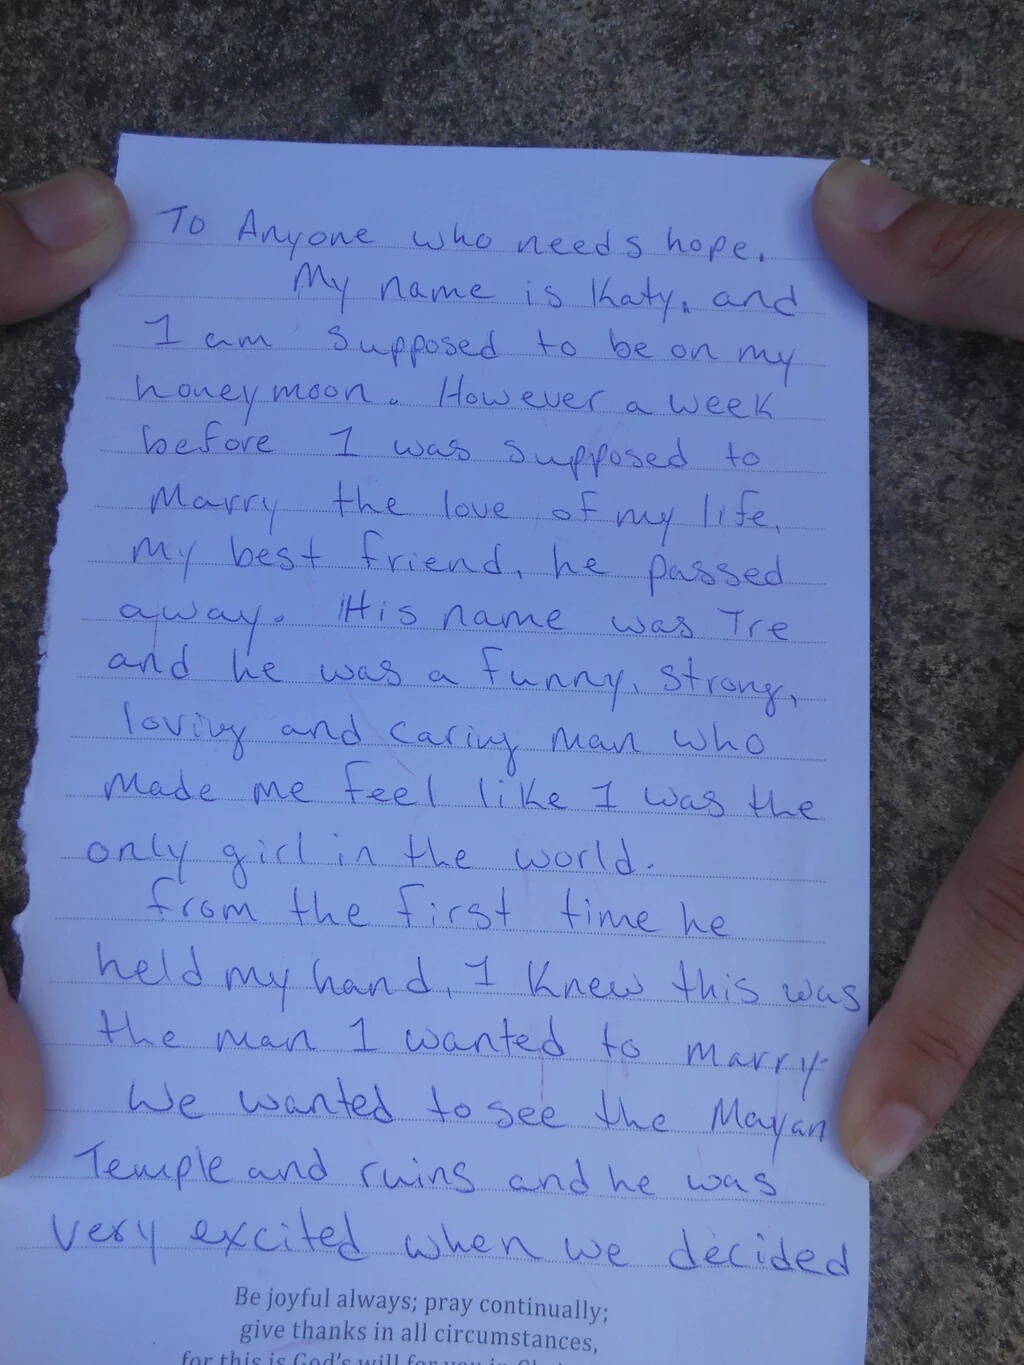 To Anyone who needs hope.
My name is Katy, and
I am supposed to be on my
honeymoon. However a week
before I was supposed to
Marry the love of my life,
my best friend, he passed
away. His name was Tre
and he was a funny, strong,
loving and caring man who
made me feel like I was the
only girl in the world.
From the first time he
held my hand, I knew this was
the man I wanted to marry.
We wanted to see the Mayan
Temple and ruins and he was
very excited when we decided
Be joyful always; pray continually;
give thanks in all circumstances,
for this is God's will for you in